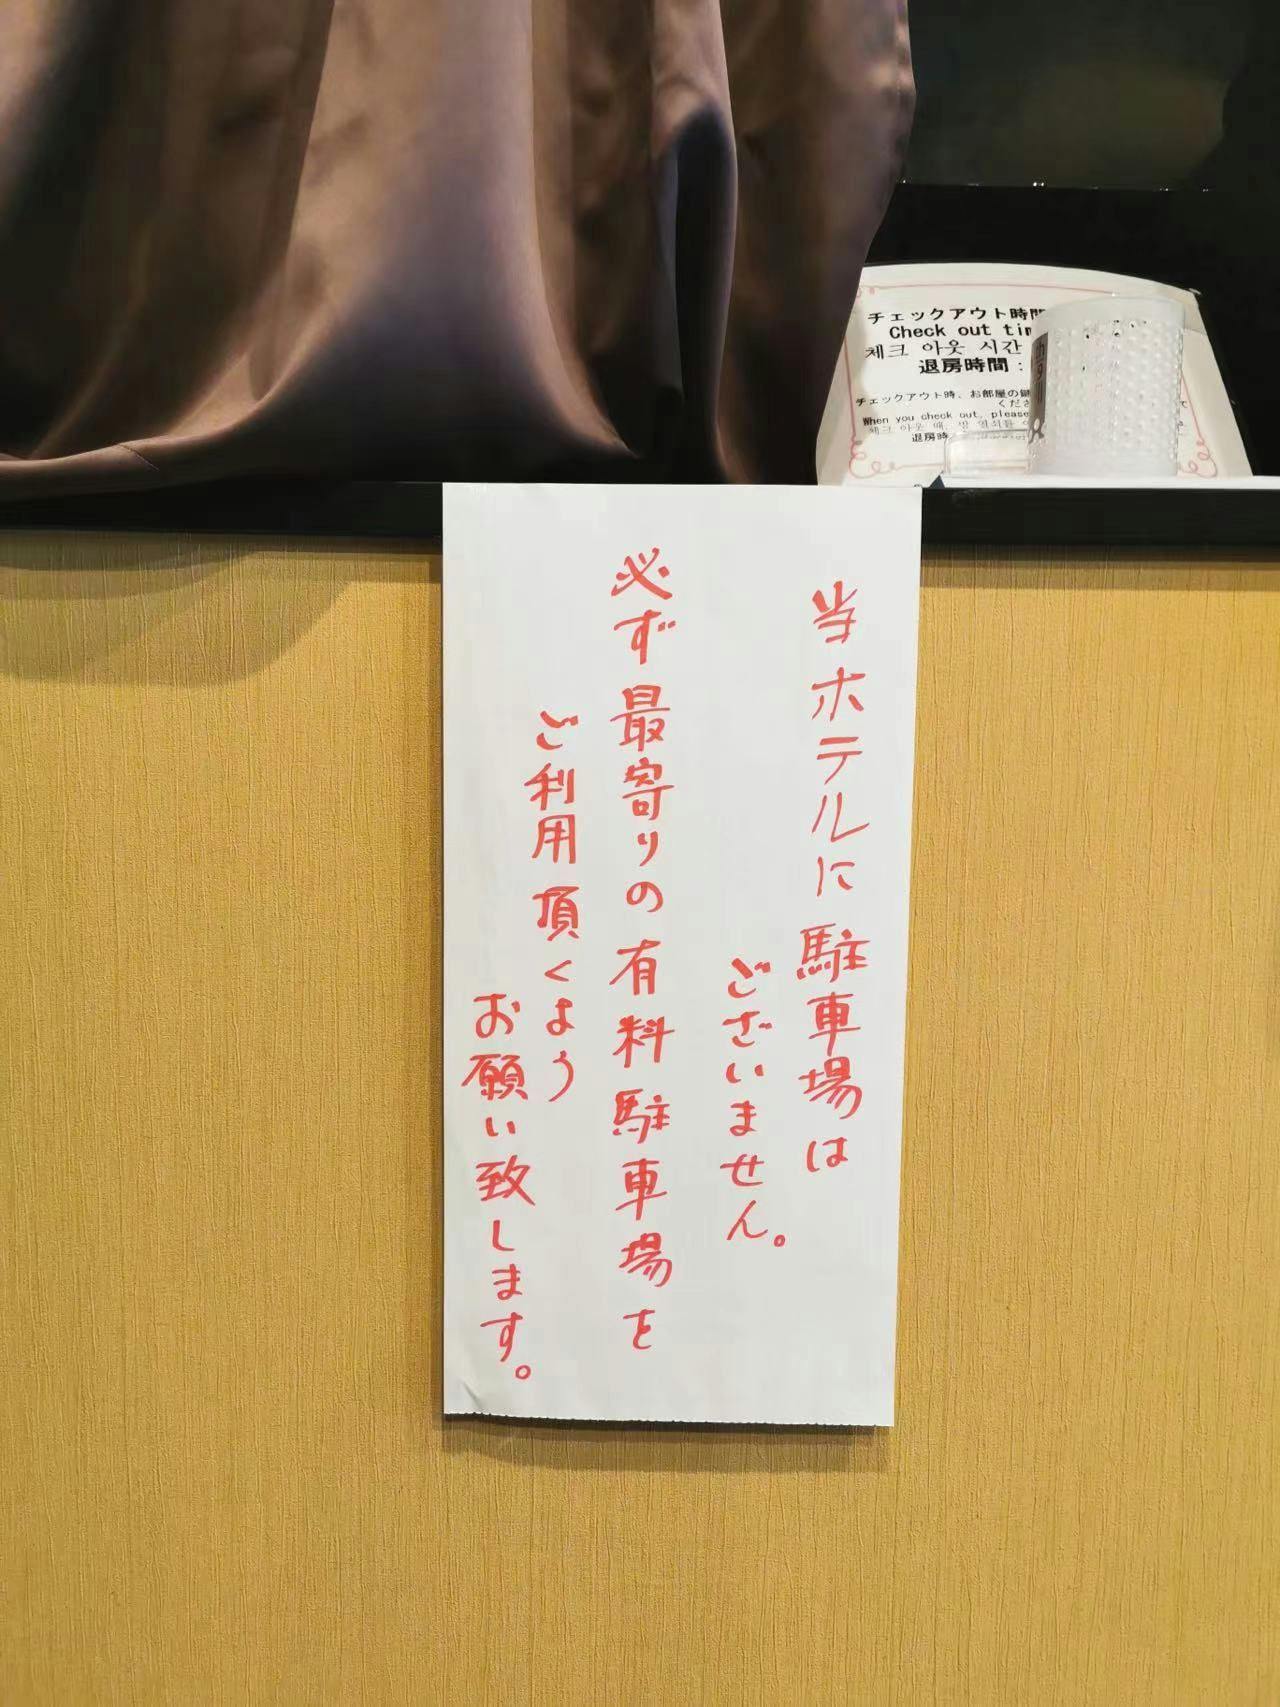 チェックアウト時間
Check out tim
체크 아웃 시간
退房時間：
チェックアウト時、お部屋の鍵
くださ
When you check out, please
退房時
当ホテルに駐車場は
ございません。
必ず最寄りの有料駐車場を
ご利用頂くよう
お願い致します。